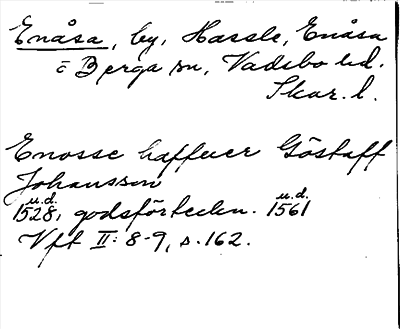 Enåsa, by, Hassle, Enåsa
o Berga sn, Vadsbo hd.
Skar. l.
Enosse haffuer Göstaff
Johansson
u.d. u.d.
1528, godsförteckn. 1561
Vft II: 8-9, s. 162.